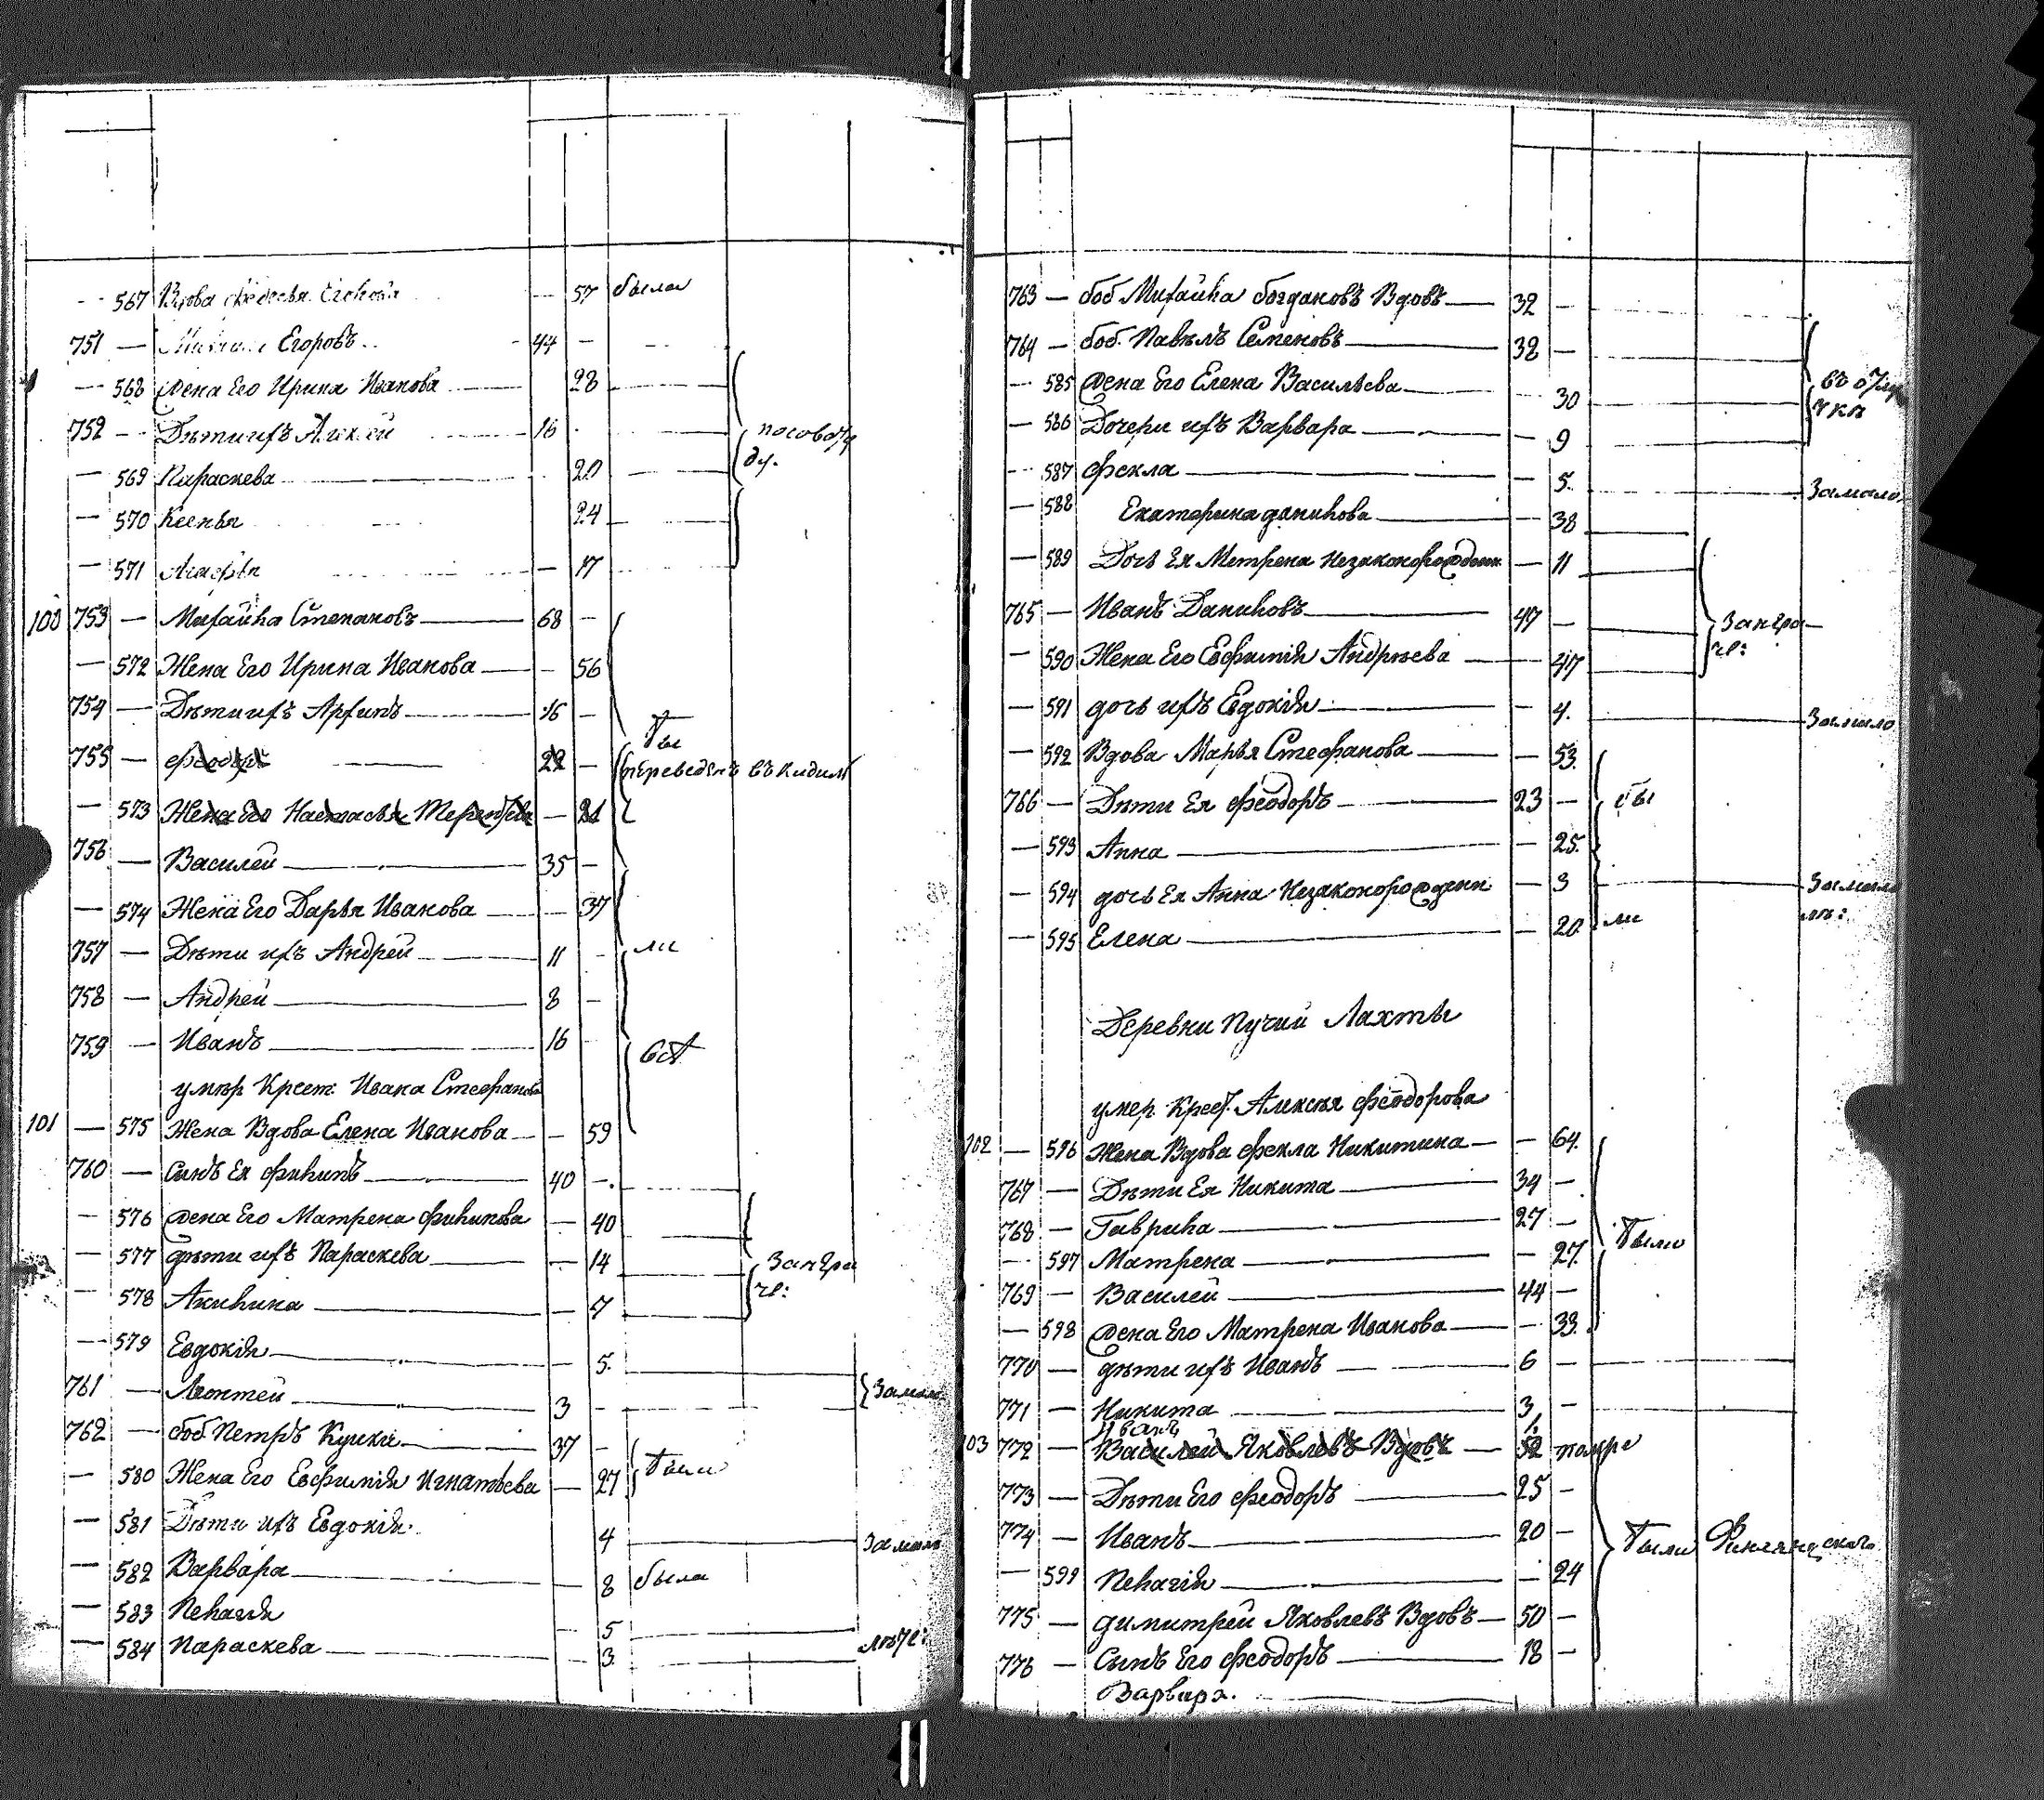 567 Вдова 57 была
751 — Егоровъ 44 —
— 568 жена Его Ирина Иванова 28
752 — Дѣти ихъ Алексѣй 16
— 569 Параскева 20
— 570 Ксенья 24
— 571 Агафья — 17
по сово ду.
100 753 — Михайла Степановъ 68 —
— 572 Жена Его Ирина Иванова — 56
754 — Дѣти ихъ Архипъ 16 —
755 — Феодоръ 22 —
— 573 Жена Его Настасья Терентьева — 21
756 — Василей 35 —
— 574 Жена Его Дарья Иванова — 37
757 — Дѣти ихъ Андрей 11 -
758 — Андрей 8 -
759 — Иванъ 16 -
Бы ли
переведенъ въ
умер Крест. Ивана Стефанова
101 — 575 Жена Вдова Елена Иванова — 59
760 — Сынъ Ея Филипъ 40 —
— 576 жена Его Матрена Филипова — 40
— 577 дѣти ихъ Параскева — 14
— 578 Акилина — 7
— 579 Евдокія — 5.
761 — Леонтей 3 —
762 — боб. Петръ Кукки 37 —
— 580 Жена Его Евфимія Игнатьева — 27 были
— 581 Дѣти ихъ Евдокія 4 замало
— 582 Варвара — 8 была
— 583 Пелагія — 5
— 584 Параскева — 3. лѣт:
763 — боб Михайла богдановъ Вдовъ 32 —
764 — боб. Павелъ Семеновъ 32 —
— 585 жена Его Елена Васильева — 30
— 586 Дочери ихъ Варвара — 9
въ отлу чкѣ
— 587 Фекла — 5. замало
— 588 Екатерина данилова — 38
— 589 Дочь Ея Метрена незаконорожденн — 11
765 — Иванъ Даниловъ 47 —
— 590 Жена Его Евфимія Андреева — 47
— 591 дочь ихъ Евдокія — 4. замало
— 592 Вдова Марья Стефанова — 53.
766 — Дѣти Ея Феодоръ 23 — бы
— 593 Анна — 25.
— 594 дочь Ея Анна Незаконорожденн — 3 замало
— 595 Елена — 20. ли лѣт:
Деревни Пучий Лахты
умер. Крест. Алексѣя Феодорова
102 — 596 Жена Вдова Фекла Никитина — 64.
767 — Дѣти Ея Никита 34 —
768 — Гаврила 27 — были
— 597 Матрена — 27.
769 — Василей 44 —
— 598 жена Его Матрена Иванова — 33.
770 — дѣти ихъ Иванъ 6 —
771 — Никита 3 —
Иванъ
103 772 — Василей Яковлевъ Вдовъ — 52
773 — Дѣти Его Феодоръ 25 —
774 — Иванъ 20 — были Финляндскаго
— 599 Пелагія — 24
775 — димитрей Яковлевъ Вдовъ 50 —
776 — Сынъ Его Феодоръ 18 —
Варвара.